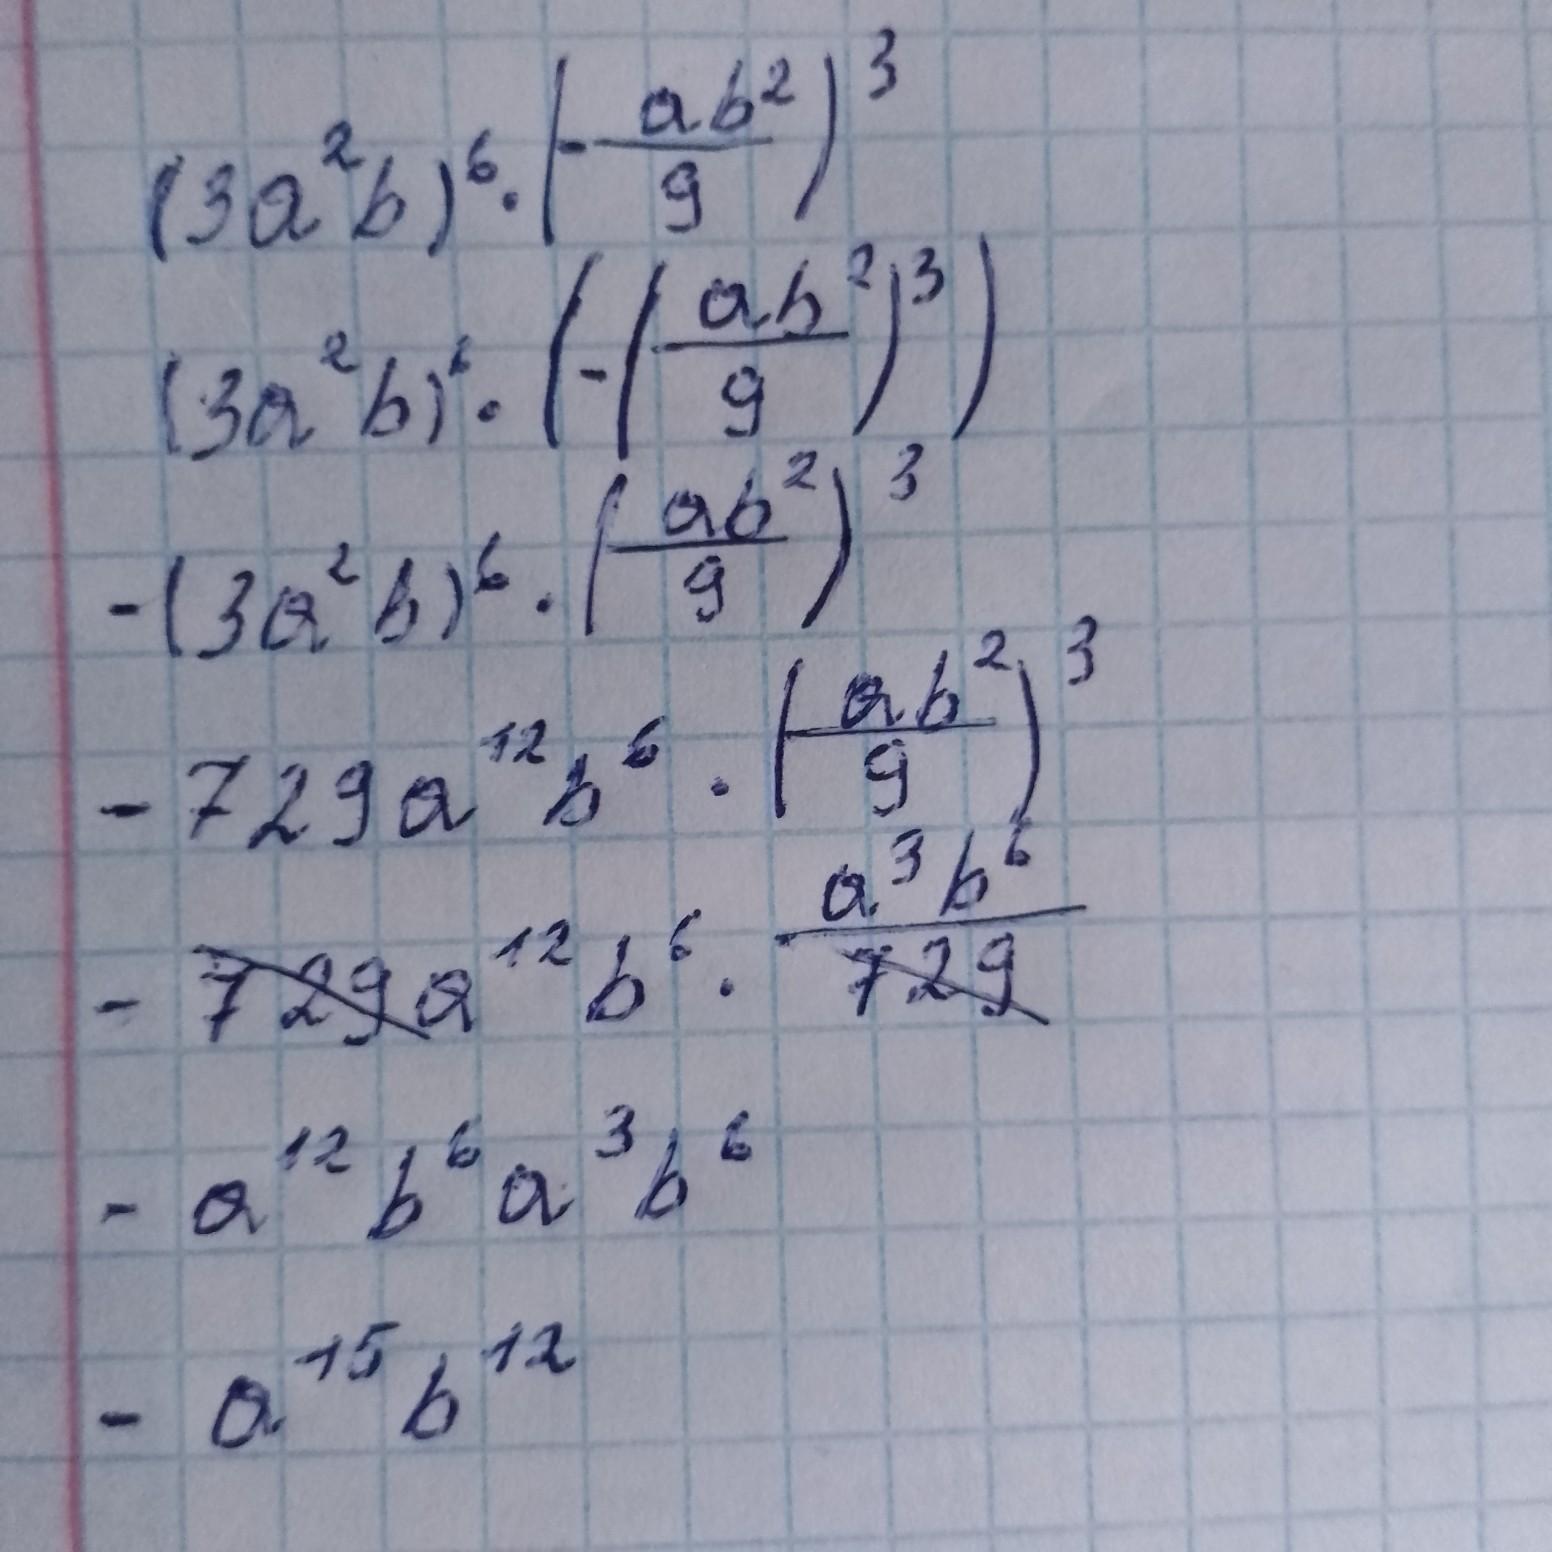 (3a²b)⁶ · (-ab²/9)³
(3a²b)⁶ · (-(ab²/9)³)
-(3a²b)⁶ · (ab²/9)³
- 729a¹²b⁶ · (ab²/9)³
- 729a¹²b⁶ · a³b⁶/729
- a¹²b⁶a³b⁶
- a¹⁵b¹²